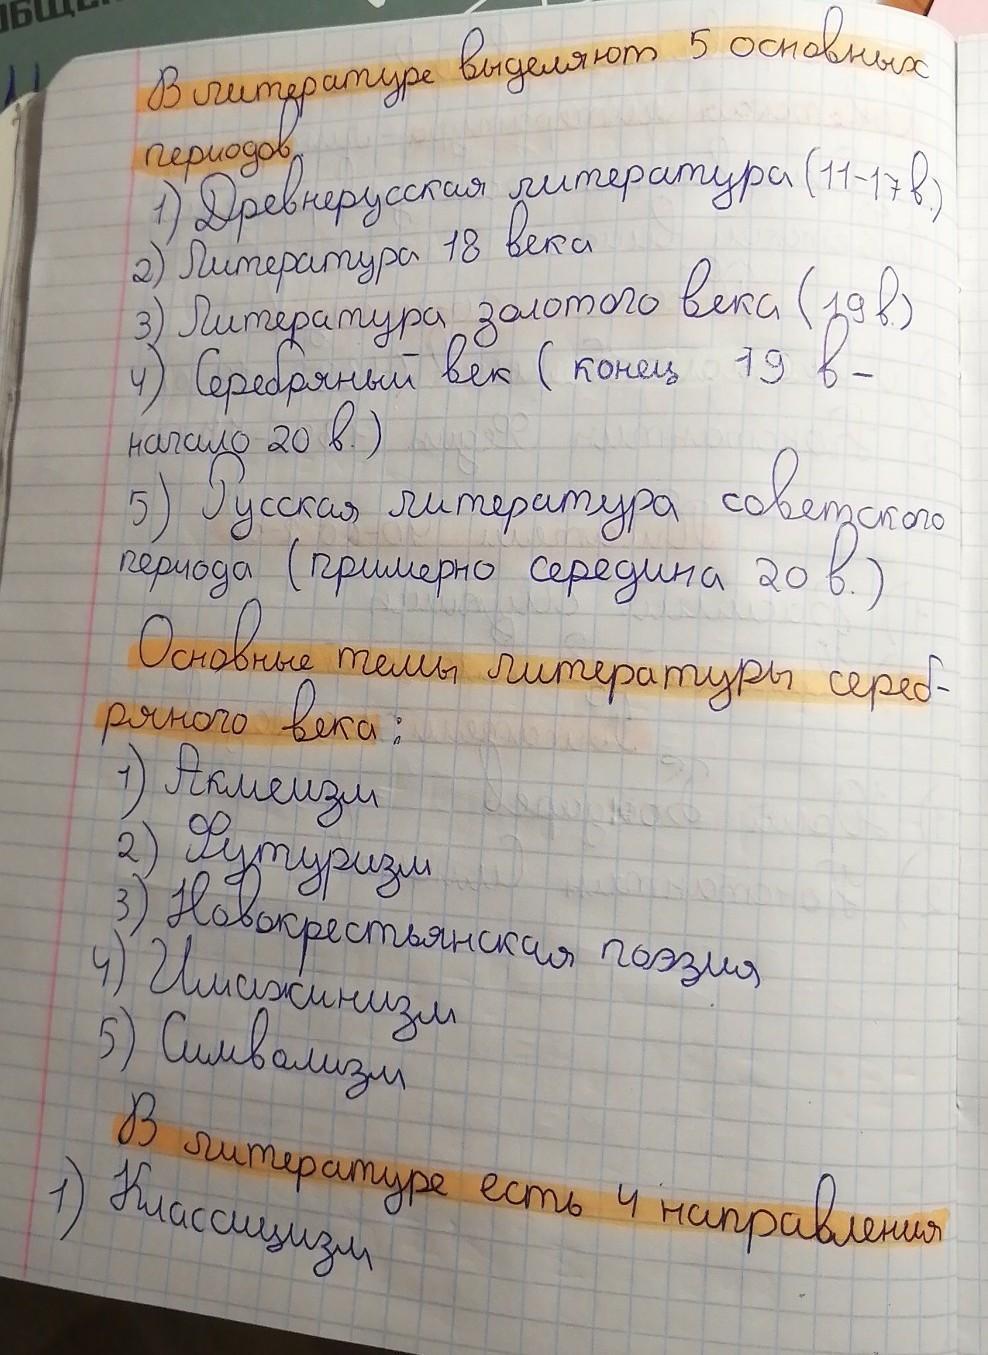 ОБЩЕ
В литературе выделяют 5 основных
периодов
1) Древнерусская литература (11-17 в.)
2) Литература 18 века
3) Литература золотого века (19 в.)
4) Серебряный век ( конец 19 в -
начало 20 в.)
5) Русская литература советского
периода (примерно середина 20 в.)
Основные темы литературы сереб-
ряного века:
1) Акмеизм
2) Футуризм
3) Новокрестьянская поэзия
4) Имажинизм
5) Символизм
В литературе есть 4 направления
1) Классицизм